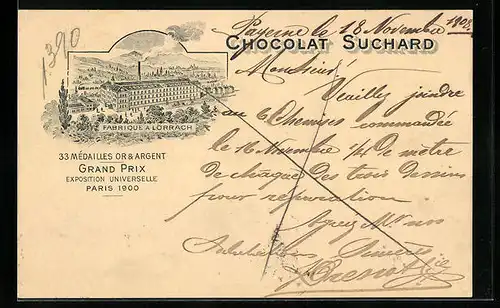 1390
Payerne le 18 Novembre 1902
CHOCOLAT SUCHARD
Monsieur
Veuillez joindre
au 6 Chemises commandée
le 16 Novembre 1/4 de mètre
de chaque des trois dessins
pour réparation
Agreez Mr. nos
Salutations Sincères
FABRIQUE A LÖRRACH
33 MÉDAILLES OR & ARGENT
GRAND PRIX
EXPOSITION UNIVERSELLE
PARIS 1900